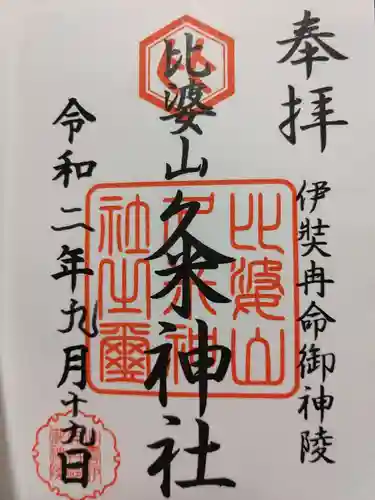 奉拝
伊弉冉命御神陵
比婆山久米神社
比婆山久米神社之璽
令和二年九月十九日